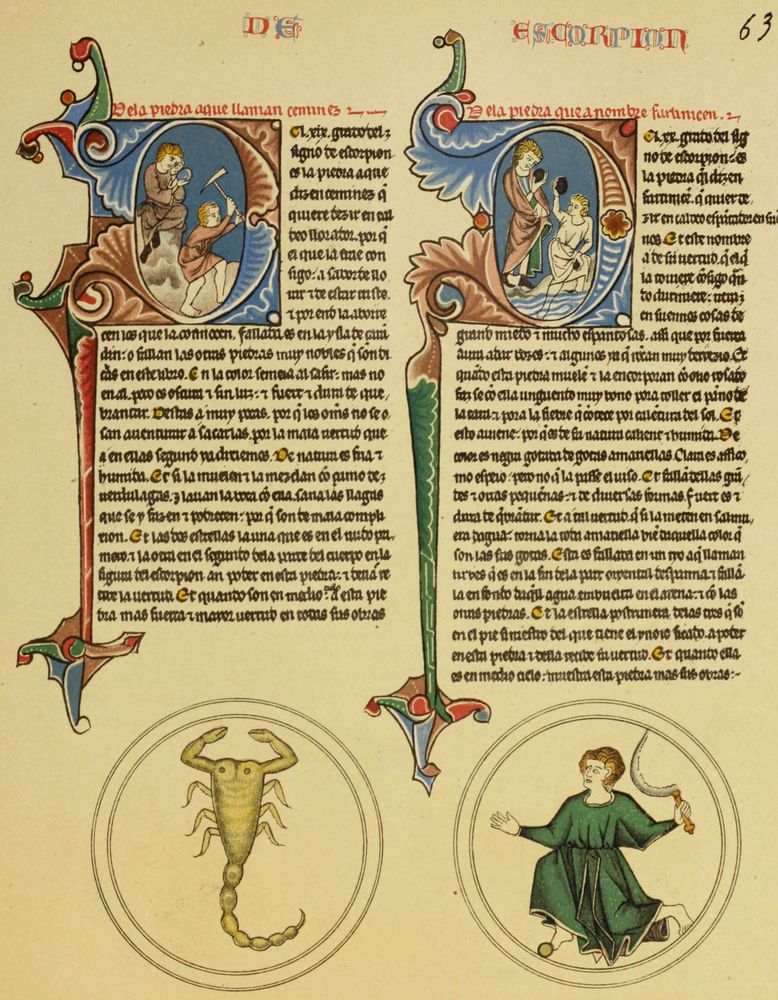 DE
ESCORPION
63
De la piedra a que llaman ceminez
El .xix. grado del
signo de escorpion
es la piedra a que
dizen ceminez q̄
quiere dezir en cal
deo llorador. por q̄
el que la tiene con
sigo: a sabor de llo
rar ⁊ de estar triste.
⁊ por end la aborre
cen los que la connocen. fallada es en la ysla de
o fallan las otras piedras muy nobles q̄ son di
chas en este libro. En la color semeia al safir: mas no
en al. pero es oscura ⁊ sin luz: ⁊ fuert ⁊ dura de que
brantar. Destas a muy pocas. por q̄ los om̄s no se o
san auenturar a sacarlas. por la mala uertud que
a en ellas segund ya dixiemos. De natura es fria ⁊
humida. Et si la muelen ⁊ la mezclan cō çumo de
uerdulagas. ⁊ lauan la boca cō ella. sana las llagas
que se y fazen ⁊ podrecen: por q̄ son de mala compli
xion. Et las dos estrellas la una que es en el nudo pri
mero. ⁊ la otra en el segundo de la parte del cuerpo en la
figura del escorpion an poder en esta piedra: ⁊ della re
cibe la uertud. Et quando son en medio cielo esta pie
dra mas fuerza ⁊ mayor uertud en todas sus obras
De la piedra que a nombre faranicen.
El .xx. grado del sig
no de escorpion: es
la piedra q̄ dizen
faranicē. q̄ quier de
zir en caldeo
Et este nombre
a de su uertud. q̄ el q̄
la touiere cōsigo quā
do durmiere: uerā
en suennos cosas de
grand miedo ⁊ mucho espantosas. assi que por fuerça
aura a dar bozes: ⁊ algunos ya q̄ Et
quādo esta piedra muelē ⁊ la encorporan cō olio rosado
faz se cō ella unguento muy bono pora toller el pāno de
la cara ⁊ pora la fiebre q̄ cōtece por calētura del sol. Et
esto auiene: por q̄ es de su natura caliente ⁊ humida. De
color es negra gotada de gotas amariellas. Clara es assi co
mo espeio: pero no q̄ la passe el uiso. Et fallā dellas grā
des ⁊ otras pequēnas: ⁊ de diuersas formas. fuert es ⁊
dura de q̄brātar. Et a tal uertud. q̄ si la meten en salmu
era dagua: torna la toda amariella daquella color q̄
son las sus gotas. Esta es fallada en un ryo a q̄ llaman
q̄ es en la fin de la part oryental ⁊ fallā
la en fondo daq̄l agua embuelta en el arena: ⁊ cō las
otras piedras. Et la estrella postrimera de las tres q̄ sō
en el pie siniestro del que tiene el ynoio ficado. a poder
en esta piedra ⁊ della recibe su uertud. Et quando ella
es en medio cielo: muestra esta piedra mas sus obras: